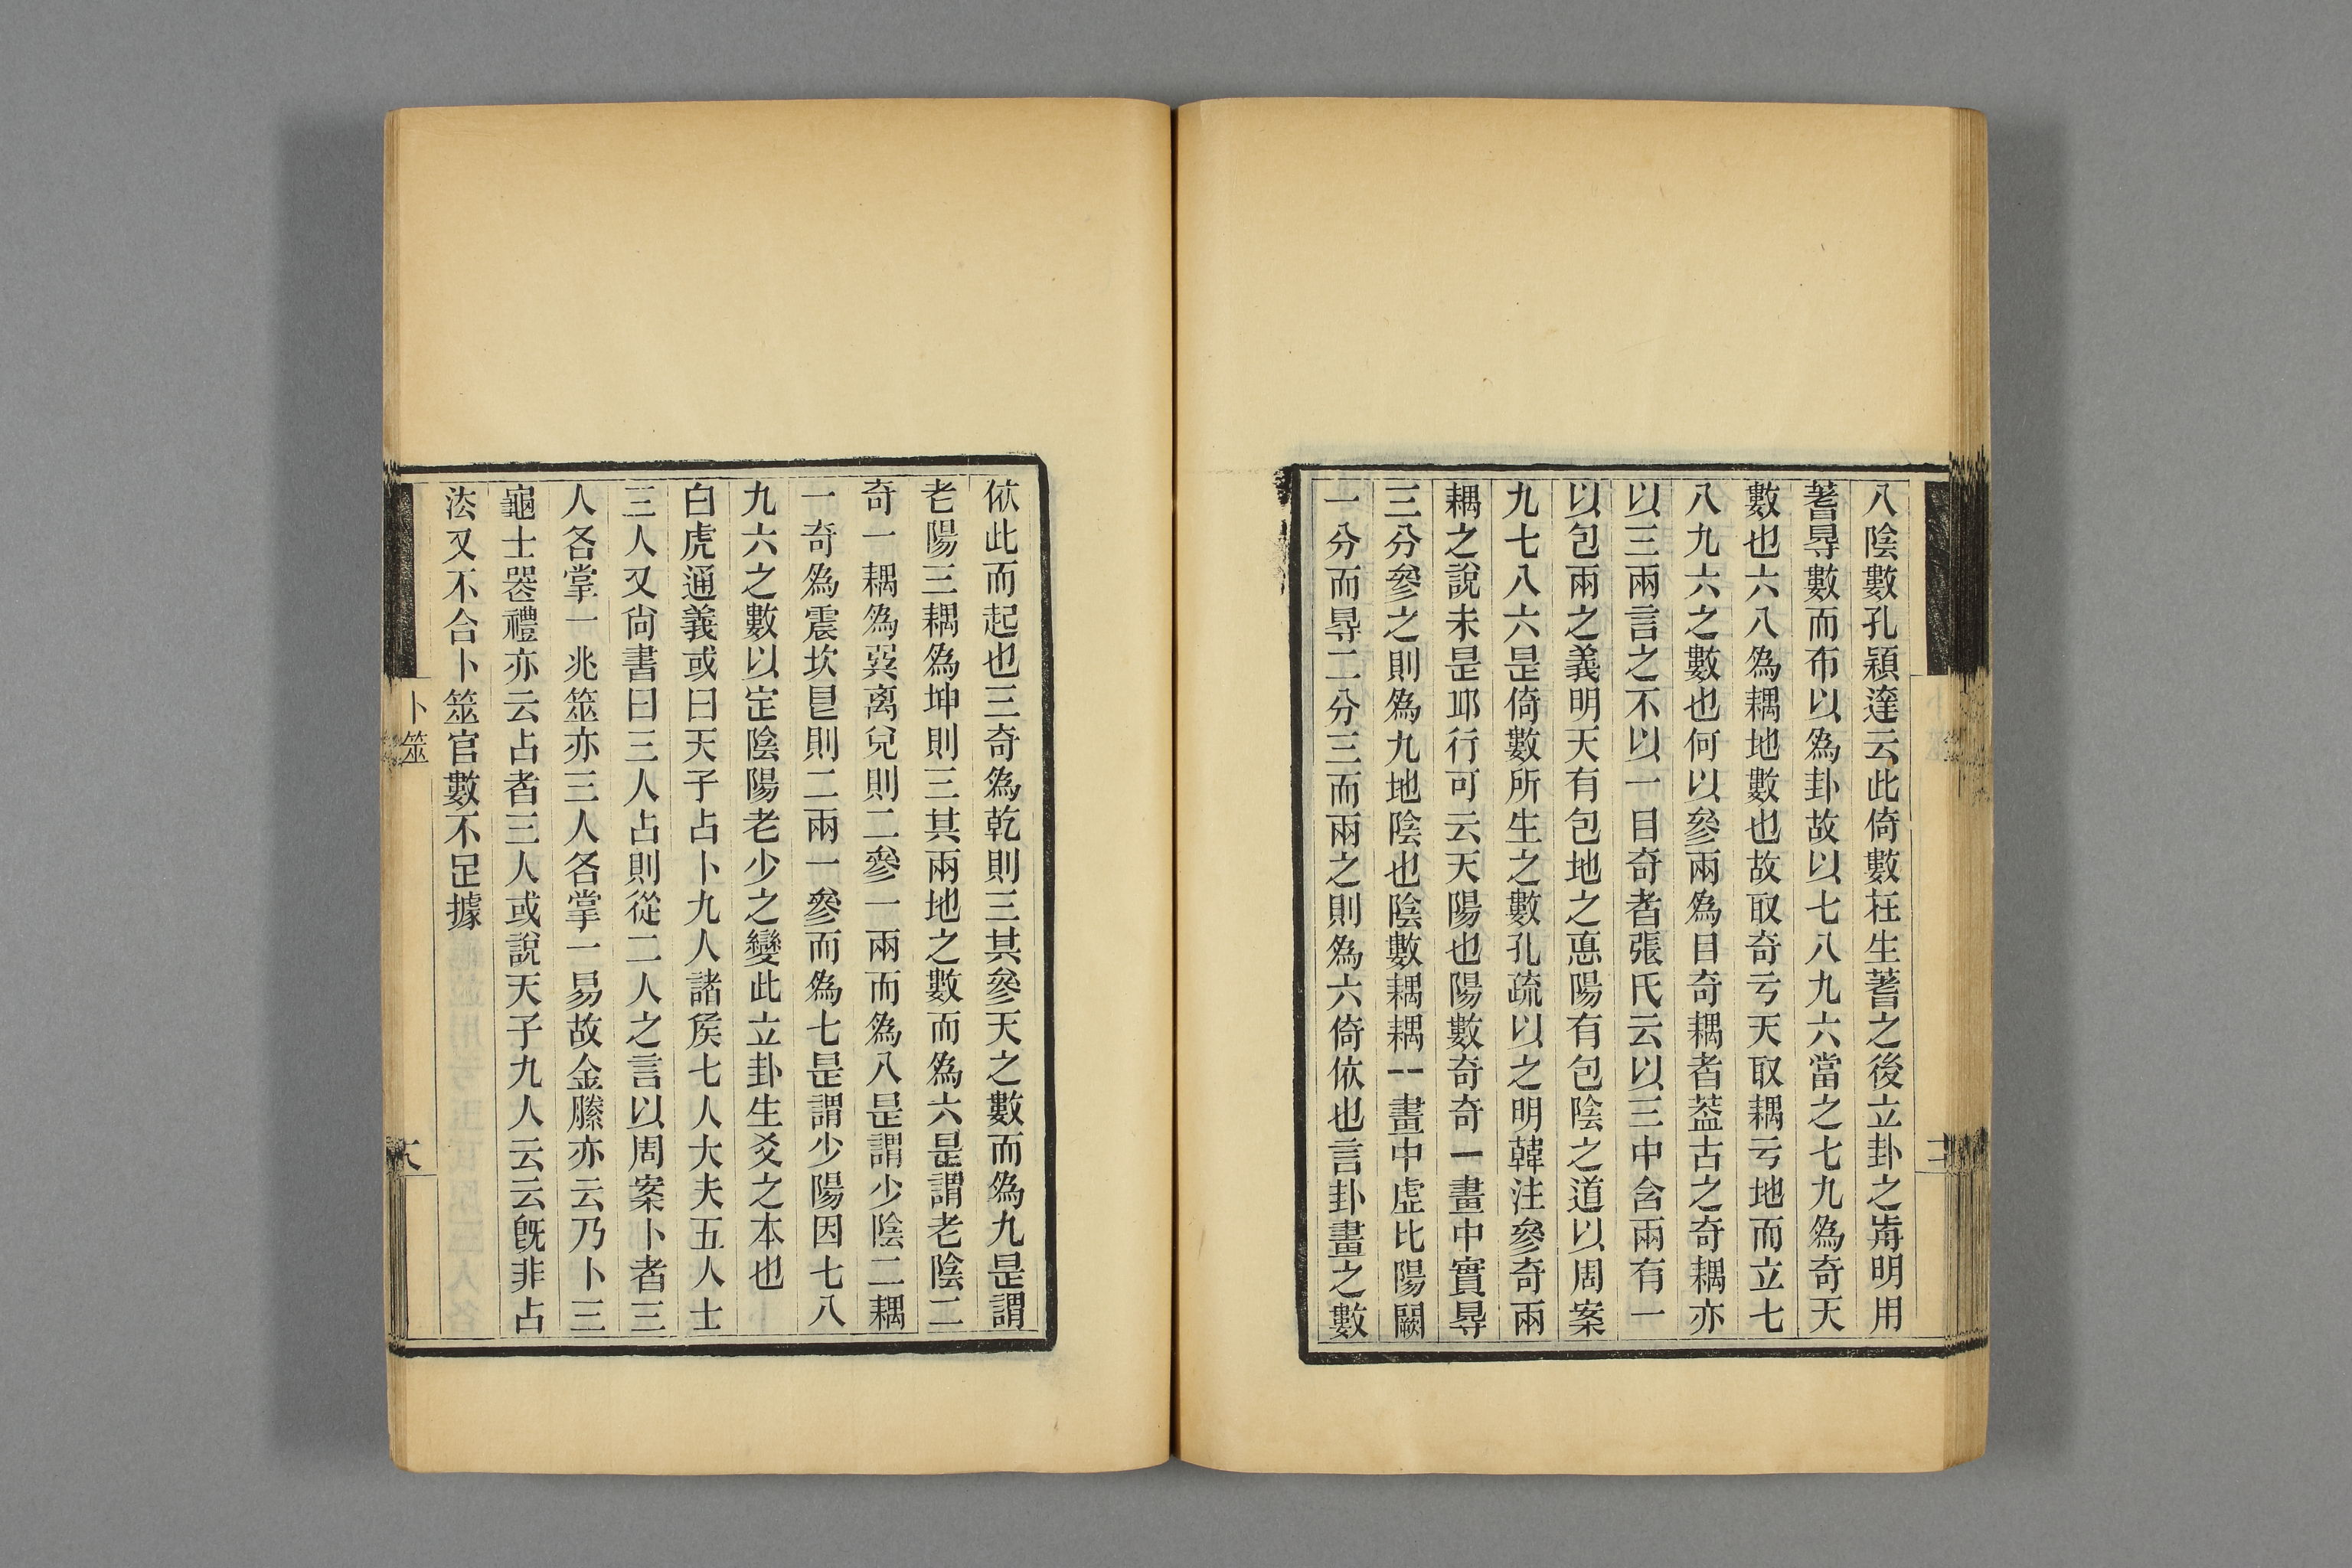 八陰數孔穎達云此倚數在生蓍之後立卦之歬明用
蓍㝵數而布以爲卦故以七八九六當之七九爲奇天
數也六八爲耦地數也故取奇亏天取耦亏地而立七
八九六之數也何以參兩爲目奇耦者葢古之奇耦亦
以三兩言之不以一目奇者張氏云以三中含兩有一
以包兩之義明天有包地之悳陽有包陰之道以周案
九七八六是倚數所生之數孔疏以之明韓注參奇兩
耦之說未是邧行可云天陽也陽數奇奇一畫中實㝵
三分參之則爲九地陰也陰數耦耦--畫中虛比陽闕
一分而㝵二分三而兩之則爲六倚依也言卦畫之數
依此而起也三奇爲乾則三其參天之數而爲九是謂
老陽三耦爲坤則三其兩地之數而爲六是謂老陰二
奇一耦爲巽离兌則二參一兩而爲八是謂少陰二耦
一奇爲震坎㫐則二兩一參而爲七是謂少陽因七八
九六之數以定陰陽老少之變此立卦生爻之本也
白虎通義或曰天子占卜九人諸矦七人大夫五人士
三人又尙書曰三人占則從二人之言以周案卜者三
人各掌一兆筮亦三人各掌一易故金縢亦云乃卜三
龜士器禮亦云占者三人或說天子九人云云旣非占
法又不合卜筮官數不足據
卜筮
十八